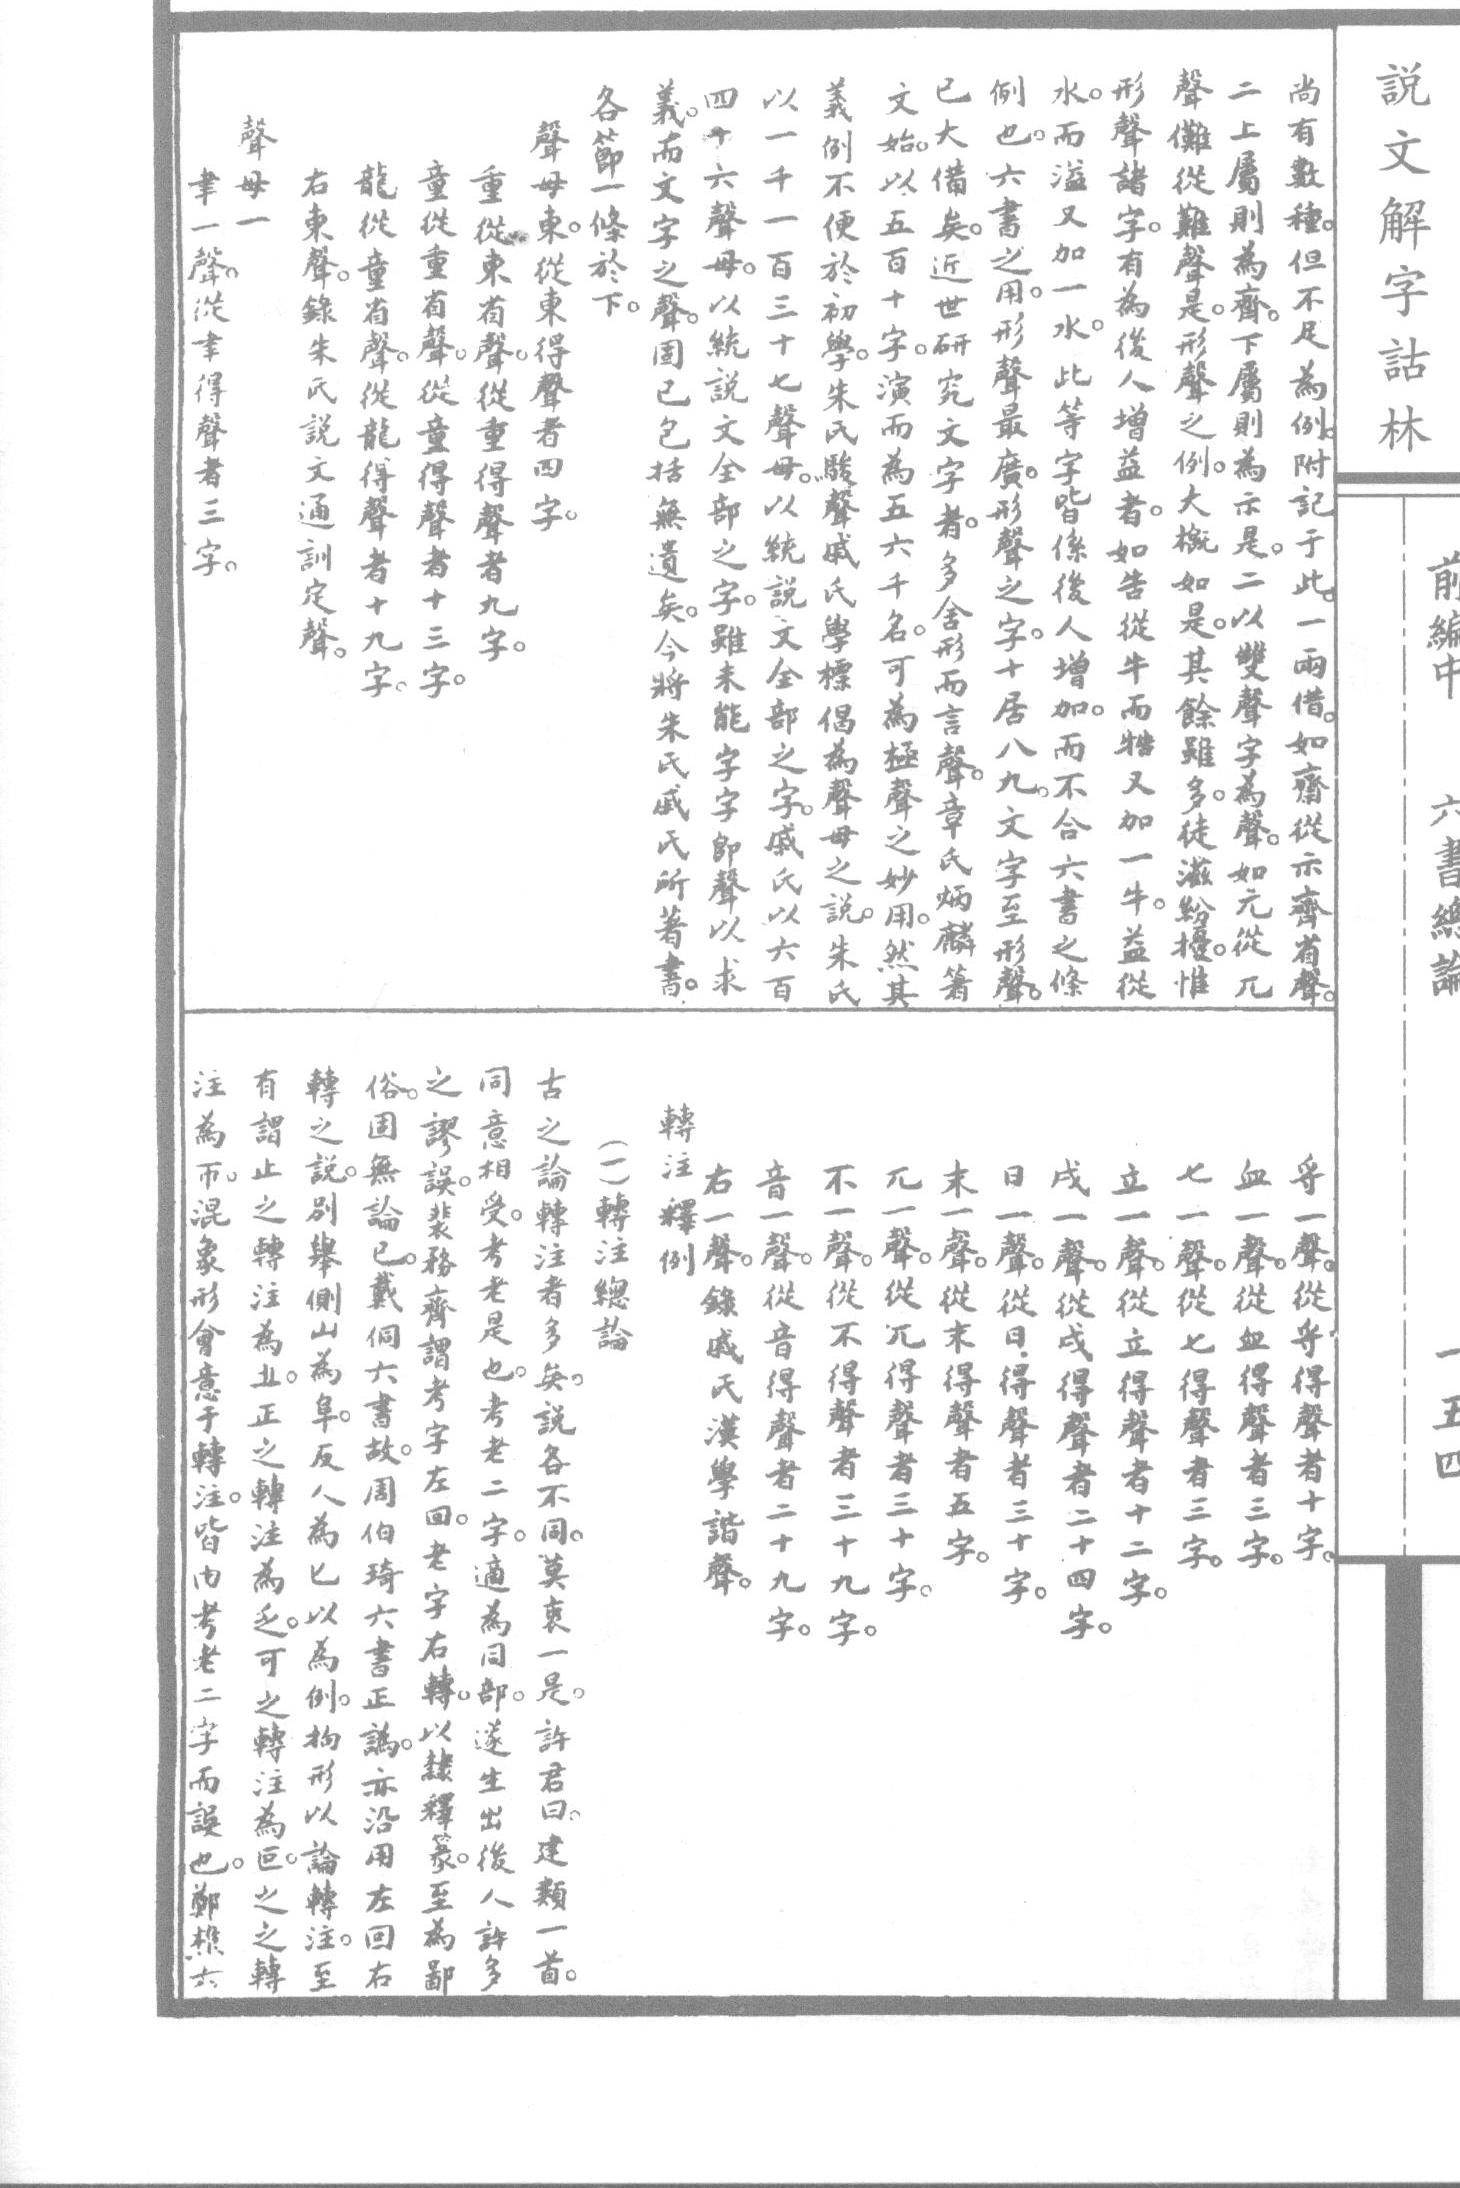 説文解字詁林
前編中 六書總論 一五四
尚有數種。但不足為例。附記于此。一兩借。如齋從示齊省聲。
二上屬則為齊。下屬則為示是。二以雙聲字為聲。如元從兀
聲儺從難聲是。形聲之例。大概如是。其餘雖多。徒滋紛擾。惟
形聲諸字。有為後人增益者。如告從牛而牿又加一牛。益從
水。而溢又加一水。此等字皆係後人增加。而不合六書之條
例也。六書之用。形聲最廣。形聲之字。十居八九。文字至形聲。
已大備矣。近世研究文字者。多舍形而言聲。章氏炳麟箸
文始。以五百十字。演而為五六千名。可為極聲之妙用。然其
義例不便於初學。朱氏駿聲戚氏學標倡為聲母之説。朱氏
以一千一百三十七聲母。以統説文全部之字。戚氏以六百
四十六聲母。以統説文全部之字。雖未能字字即聲以求
義。而文字之聲。固已包括無遺矣。今將朱氏戚氏所著書。
各節一條於下。
聲母東。從東得聲者四字。
重從東省聲。從重得聲者九字。
童從重省聲。從童得聲者十三字。
龍從童省聲。從龍得聲者十九字。
右東聲。錄朱氏説文通訓定聲。
聲母一
聿一聲。從聿得聲者三字。
寽一聲。從寽得聲者十字。
血一聲。從血得聲者三字。
七一聲。從七得聲者三字。
立一聲。從立得聲者十二字。
戌一聲。從戌得聲者二十四字。
日一聲。從日得聲者三十字。
末一聲。從末得聲者五字。
兀一聲。從兀得聲者三十字。
不一聲。從不得聲者三十九字。
音一聲。從音得聲者二十九字。
右一聲。錄戚氏漢學諧聲。
轉注釋例
(一)轉注總論
古之論轉注者多矣。説各不同。莫衷一是。許君曰。建類一首。
同意相受。考老是也。考老二字。適為同部。遂生出後人許多
之謬誤。裴務齊謂考字左回。老字右轉。以隸釋篆。至為鄙
俗。固無論已。戴侗六書故。周伯琦六書正譌。亦沿用左回右
轉之説。別舉側山為阜。反人為匕以為例。拘形以論轉注。至
有謂止之轉注為㐄。正之轉注為乏。可之轉注為叵。之之轉
注為帀。混象形會意于轉注。皆由考老二字而誤也。鄭樵六